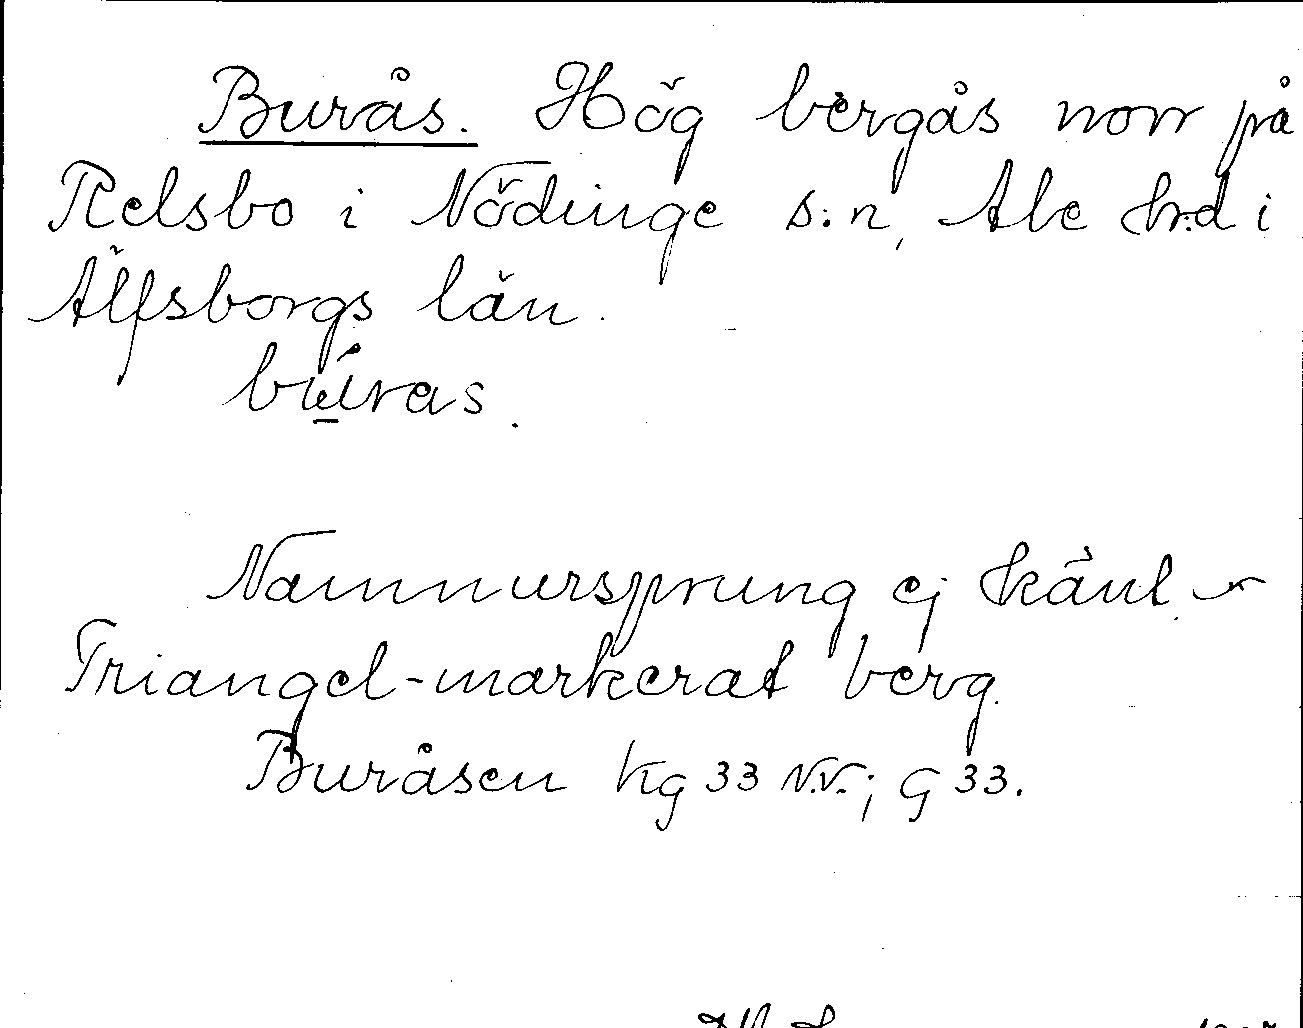 Burås. Hög bergås norr på
Relsbo i Nödinge s:n, Ale hrd i
Älfsborgs län.
Namnursprung ej känt.
Triangel-markerat berg.
Buråsen Kg 33 N.V.; G 33.